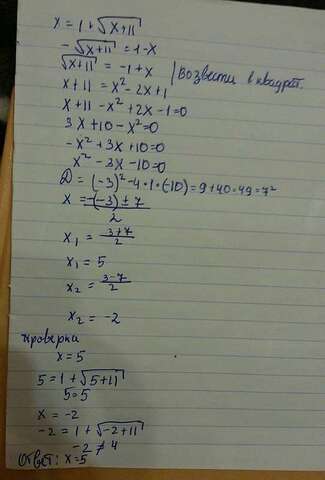 x = 1 + √(x+11)
- √(x+11) = 1-x
√(x+11) = -1+x | Возвести в квадрат.
x+11 = x² - 2x+1
x+11 - x² + 2x - 1=0
3x+10 - x²=0
-x² + 3x +10=0
x² - 3x - 10=0
D = (-3)² - 4·1·(-10) = 9+40=49=7²
x = (-(-3) ± 7)/2
x₁ = (3+7)/2
x₁ = 5
x₂ = (3-7)/2
x₂ = -2
Проверка
x=5
5=1+√(5+11)
5=5
x = -2
-2 = 1+√(-2+11)
-2 ≠ 4
Ответ: x=5